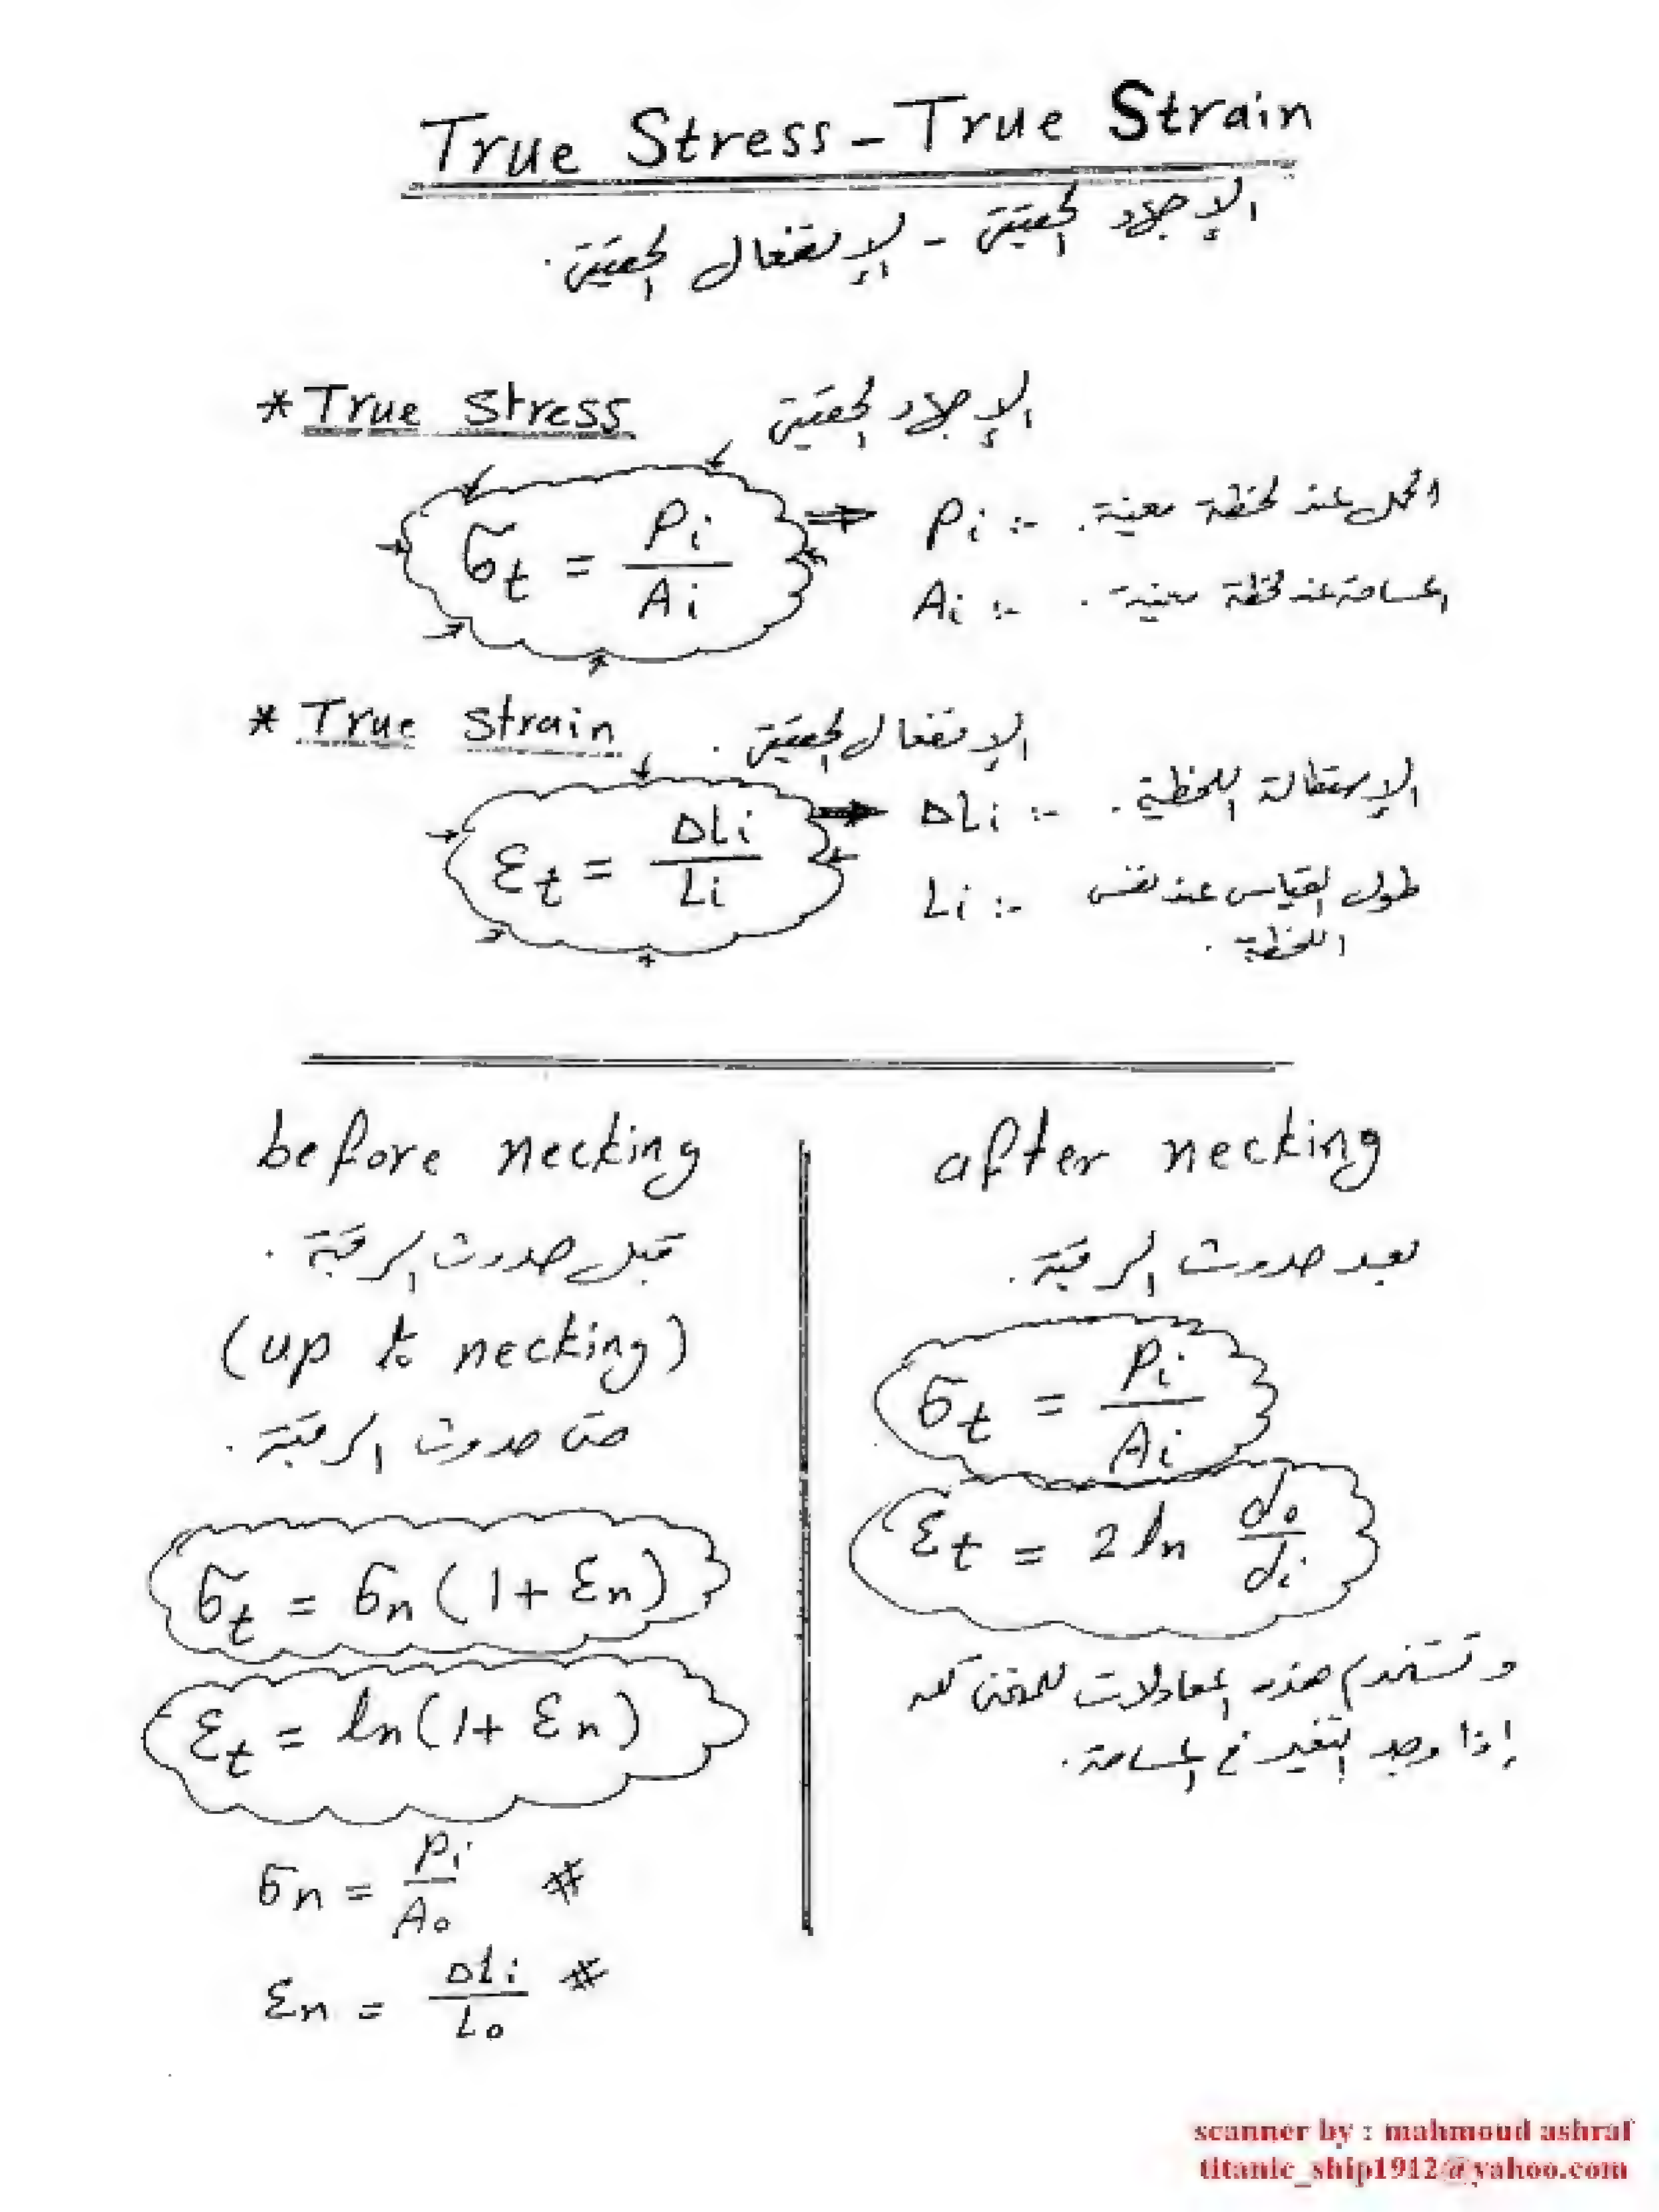 True Stress - True Strain
الإجهاد الحقيقى - الإنفعال الحقيقى.
* True Stress الإجهاد الحقيقى
σt = Pi / Ai ⇒ Pi :- الحمل عند لحظة معينة.
Ai :- المساحة عند لحظة معينة.
* True Strain الإنفعال الحقيقى.
εt = ΔLi / Li ⇒ ΔLi :- الإستطالة اللحظية.
Li :- طول القياس عند نفس
اللحظة.
before necking
قبل حدوث الرقبة.
(up to necking)
حتى حدوث الرقبة.
σt = σn (1 + εn)
εt = ln(1 + εn)
σn = Pi / Ao #
εn = ΔLi / Lo #
after necking
بعد حدوث الرقبة.
σt = Pi / Ai
εt = 2 ln do / di
وتستخدم هذه المعادلات
إذا وجد التغير فى المساحة.
scanner by : mahmoud ashraf
titanic_ship1912@yahoo.com